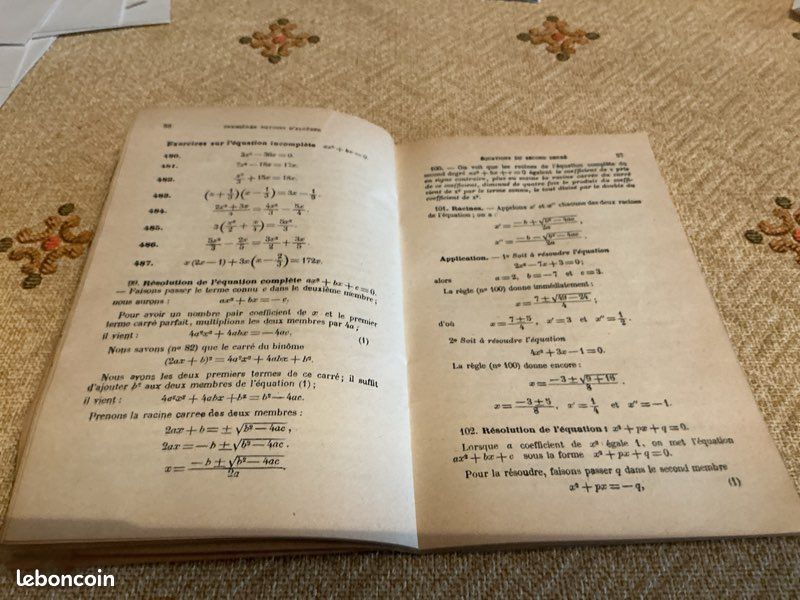 PREMIÈRES NOTIONS D'ALGÈBRE
Exercices sur l'équation incomplète ax² + bx = 0.
480. 3x² — 36x = 0.
481. 7x² — 18x = 17x.
482. + 15x = 18x.
483. (x + 1/3)(x — 1/3) = 3x — 1/9
484.
485.
486. 5x²/3 — 2x/5 = 3x²/2 + 3x/5
487. x(2x — 1) + 3x(x — 2/3) = 172x.
99. Résolution de l'équation complète ax² + bx + c = 0.
— Faisons passer le terme connu c dans le deuxième membre;
nous aurons : ax² + bx = — c.
Pour avoir un nombre pair coefficient de x et le premier
terme carré parfait, multiplions les deux membres par 4a;
il vient : 4a²x² + 4abx = — 4ac. (1)
Nous savons (nº 82) que le carré du binôme
(2ax + b)² = 4a²x² + 4abx + b².
Nous avons les deux premiers termes de ce carré; il suffit
d'ajouter b² aux deux membres de l'équation (1);
il vient : 4a²x² + 4abx + b² = b² — 4ac.
Prenons la racine carree des deux membres :
2ax + b = ± √b² — 4ac,
2ax = — b ± √b² — 4ac.
x = — b ± √b² — 4ac / 2a
ÉQUATIONS DU SECOND DEGRÉ 97
100. — On voit que les racines de l'équation complète du
second degré ax² + bx + c = 0 égalent le coefficient de x pris
en signe contraire, plus ou moins la racine carrée du carré
de ce coefficient, diminué de quatre fois le produit du coeffi-
cient de x² par le terme connu, le tout divisé par le double du
coefficient de x².
101. Racines. — Appelons x' et x" chacune des deux racines
de l'équation; on a :
x' = — b + √b² — 4ac / 2a
x" = — b — √b² — 4ac / 2a
Application. — 1º Soit à résoudre l'équation
2x² — 7x + 3 = 0;
alors a = 2, b = — 7 et c = 3.
La règle (nº 100) donne immédiatement :
x = 7 ± √49 — 24 / 4;
d'où x = 7 ± 5 / 4, x' = 3 et x" = 1/2.
2º Soit à résoudre l'équation
4x² + 3x — 1 = 0.
La règle (nº 100) donne encore :
x = — 3 ± √9 + 16 / 8.
x = — 3 ± 5 / 8, x' = 1/4 et x" = — 1.
102. Résolution de l'équation : x² + px + q = 0.
Lorsque a coefficient de x² égale 1, on met l'équation
ax² + bx + c sous la forme x² + px + q = 0.
Pour la résoudre, faisons passer q dans le second membre
x² + px = — q, (1)
leboncoin